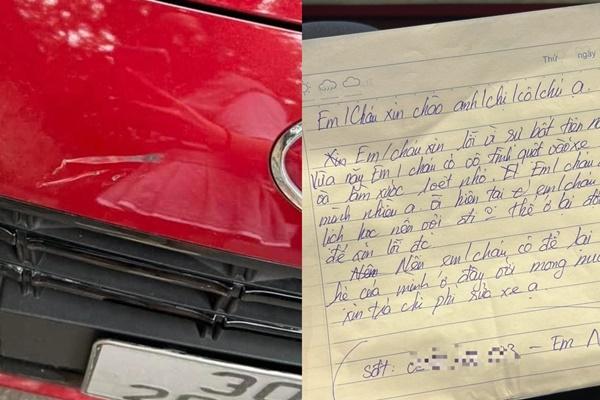 30
Thứ ngày
Em/Cháu xin chào anh/chị/cô/chú ạ.
Xin Em/cháu xin lỗi vì sự bất tiện
Vừa nãy Em/cháu có vô tình quẹt vào xe
và làm xước 1 vết nhỏ. Em/cháu
mình nhiều ạ. Vì hiện tại em/cháu
lịch học nên vội đi thể ở lại
để xin lỗi đc.
Nên Nên em/cháu có để lại
hệ của mình ở đây với mong
xin trả chi phí sửa xe ạ.
Sđt: - Em N